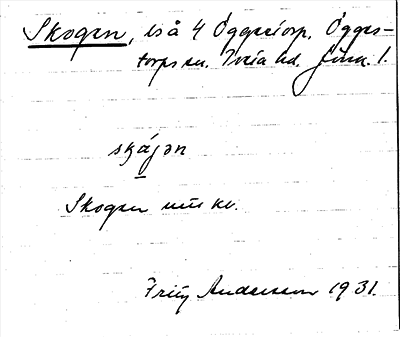 Skogen, lså 4 Öggestorp, Ögges-
torps sn. Tveta hd. Jönk. l.
skájən
Skogen uns kv.
Fritz Andersson 1931.